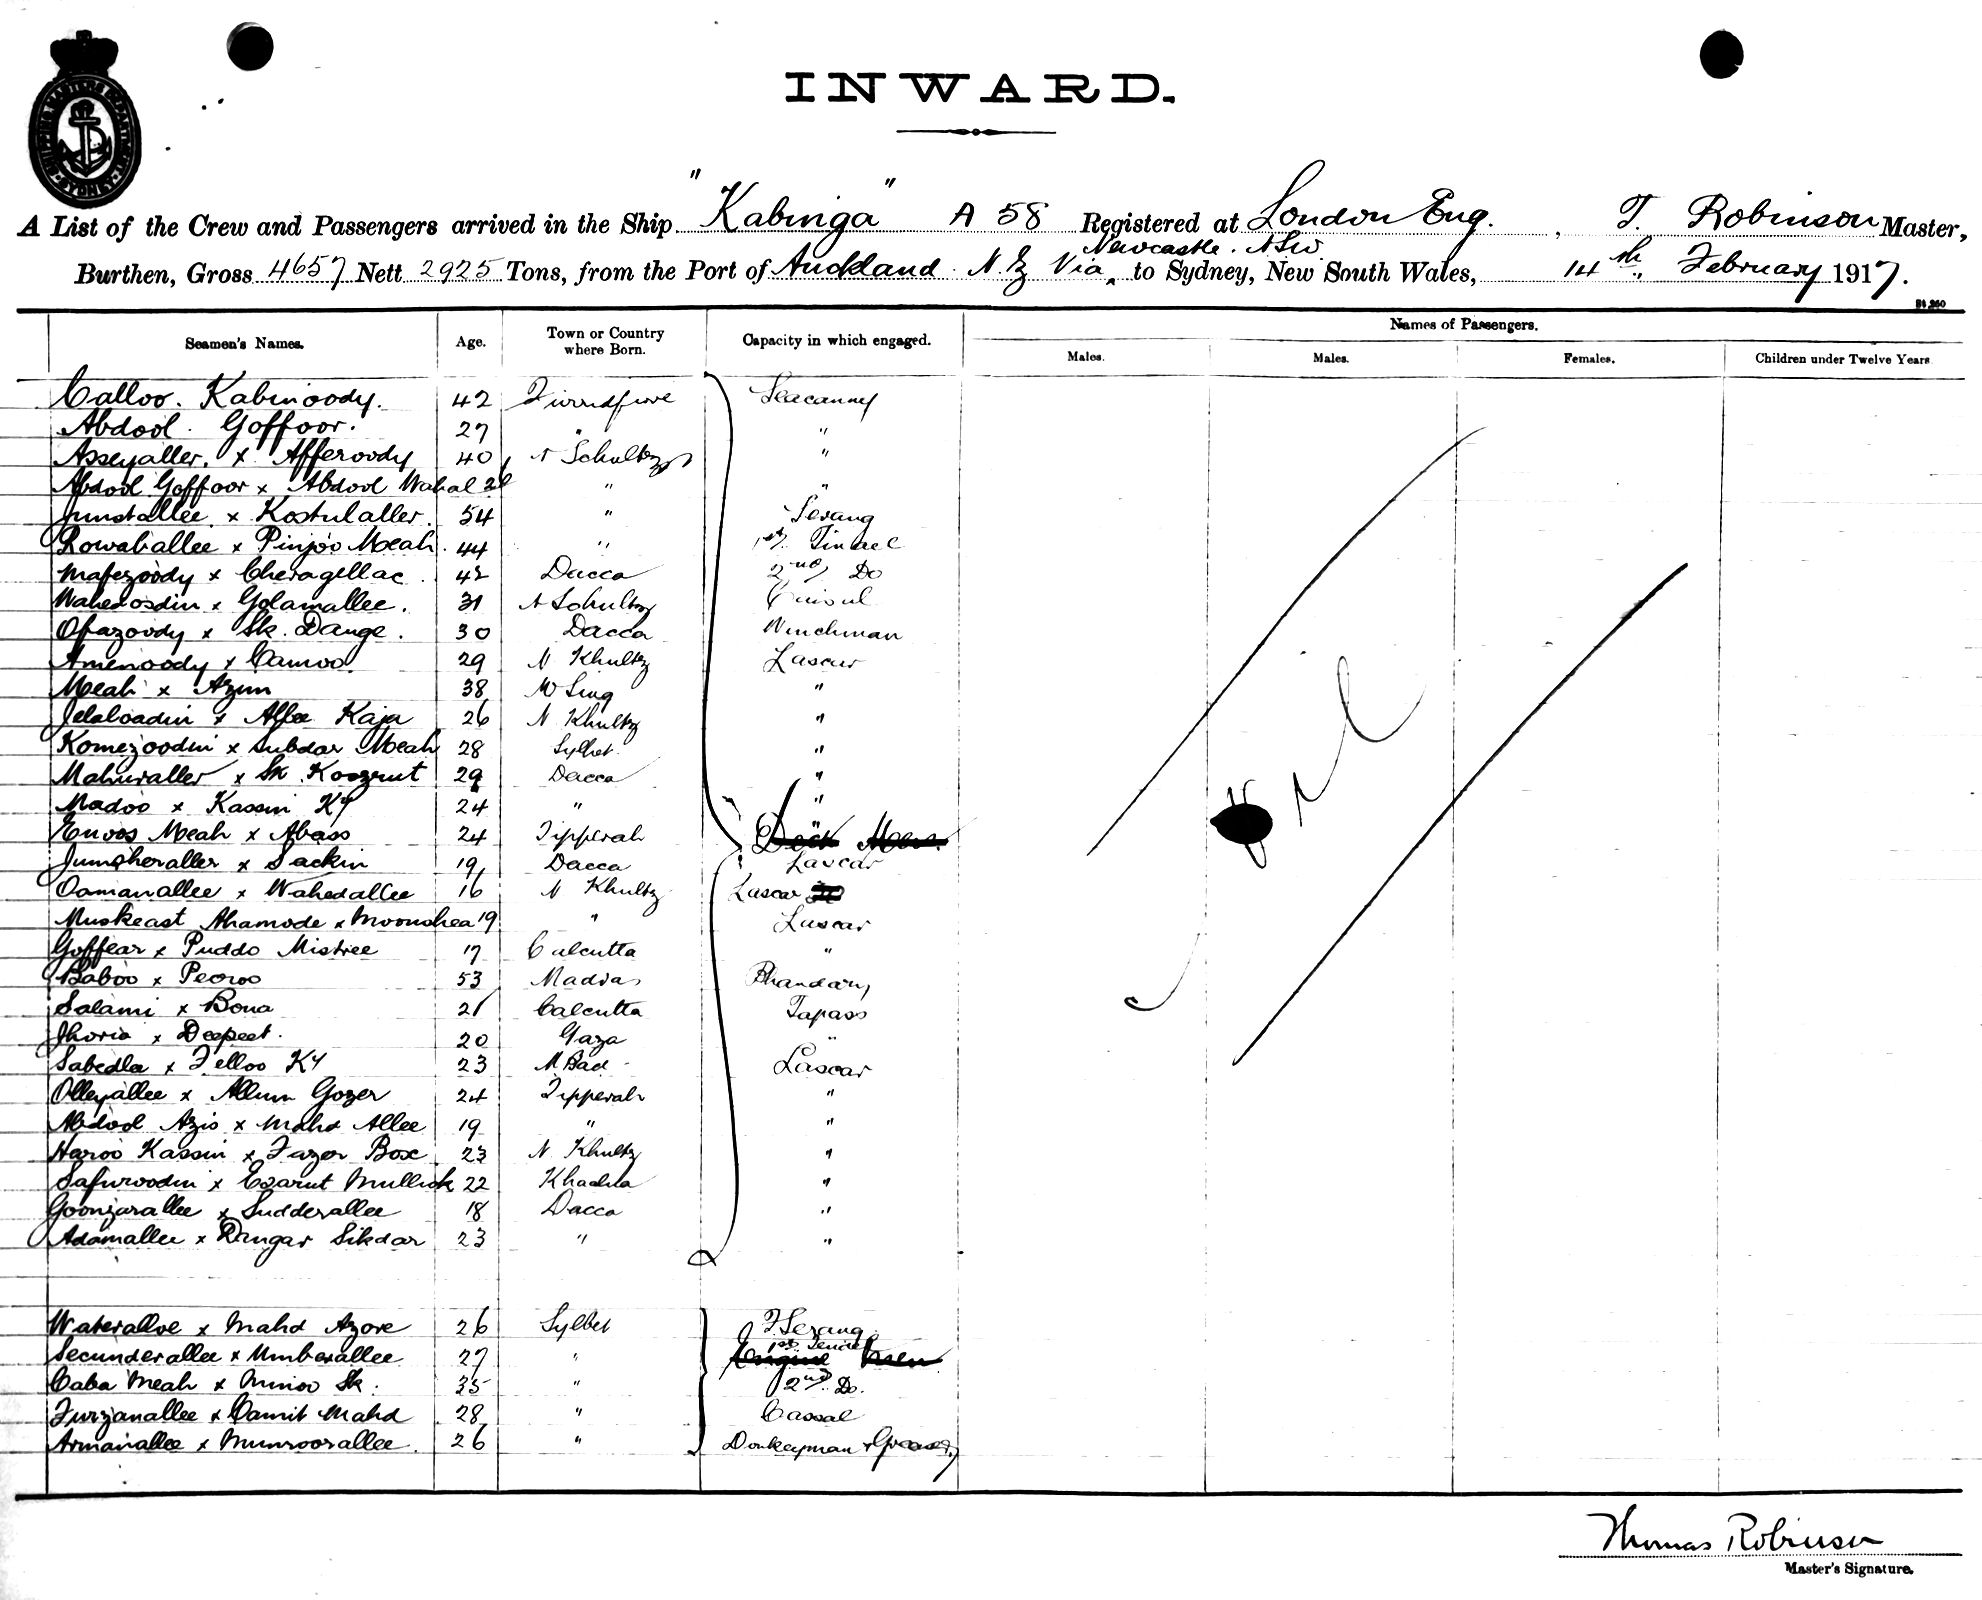 SHIPPING MASTERS DEPARTMENT SYDNEY
INWARD.
A List of the Crew and Passengers arrived in the Ship "Kabinga" A 58 Registered at London Eng. , T. Robinson Master,
Newcastle. NSW.
Burthen, Gross 4657 Nett 2925 Tons, from the Port of Auckland N Z Via to Sydney, New South Wales, 14th February 1917.
Names of Passengers.
Seamen's Names. Age. Town or Country where Born. Capacity in which engaged. Males. Males. Females. Children under Twelve Years
Calloo. Kabinoody. 42 Seacanny
Abdool. Goffoor. 27 " "
Asseyaller. x Afferoody 40 N Schultz "
Abdool Goffoor x Abdool Wahal 26 " "
Junstallee x Kostulaller. 54 " Serang
Rowaballee x Pinjoo Meah. 44 " 1st Tindel
Mafezoody x Cheragellac. 42 Dacca 2nd Do
Wahedosdin x Golamallee. 31 N Schultz
Ofazoody x Sk. Dange. 30 Dacca Winchman
Amenoody x Camoo. 29 N Khultz Lascar
Meah x Azim 38 N Sing "
Jelaloadin x Alfee Kaja 26 N Khultz "
Komezoodin x Subdar Meah 28 Sylhet. "
Mahuraller x Sk. Koozrut 29 Dacca "
Madoo x Kassin Ky 24 " "
Enoos Meah x Abass 24 Tipperah " Deck Men.
Jumsheraller x Sackin 19 Dacca Lascar
Oamanallee x Wahedallee 16 N Khultz Lascar
Muskeast Ahamode x Moonshea 19 " Lascar
Goffear x Puddo Mistree 17 Calcutta "
Baboo x Peoroo 53 Madras Bhandary
Salami x Bona 21 Calcutta Tapass
Jhoria x Deepeet. 20 Gaza "
Sabedla x Felloo Ky 23 M Bad Lascar
Olleyallee x Allum Gozer 24 Tipperah "
Abdool Azis x Mahd Allee 19 " "
Naroo Kassin x Fazer Box 23 N. Khultz "
Safuroodin x Ezarut Mullick 22 Khadila "
Goonjarallee x Sudderallee 18 Dacca "
Adamallee x Dangar Sikdar 23 " "
Nil
Waterallee x Mahd Azore 26 Sylhet F Serang.
Secunderallee x Umberallee 27 " 1st Tindel Engine Men
Caba Meah x Minoo Sk. 35 " 2nd Do.
Furzanallee x Camit Mahd 28 " Cassal
Armanallee x Munroorallee. 26 " Donkeyman & Greaser
Thomas Robinson
Master's Signature.